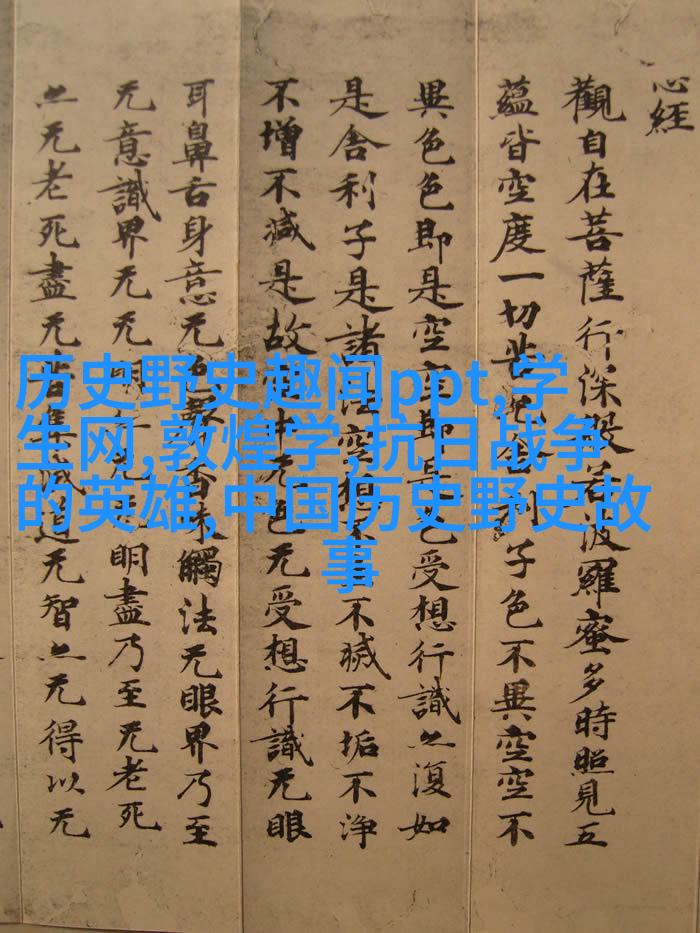 心經
觀自在菩薩行深般若波羅蜜多時照見五
蘊皆空度一切苦厄舍利子色不異空空不
異色色即是空空即是色受想行識亦復如
是舍利子是諸法空想不生不滅不垢不淨
不增不減是故空中无色无受想行識无眼
耳鼻舌身意无色聲香味觸法无眼界乃至
无意識界无无明亦无无明盡乃至无老死
亦无老死盡无苦集滅道无智亦无得以无
历史野史趣闻ppt,学
生网,敦煌学,抗日战争
的英雄,中国历史野史故
事